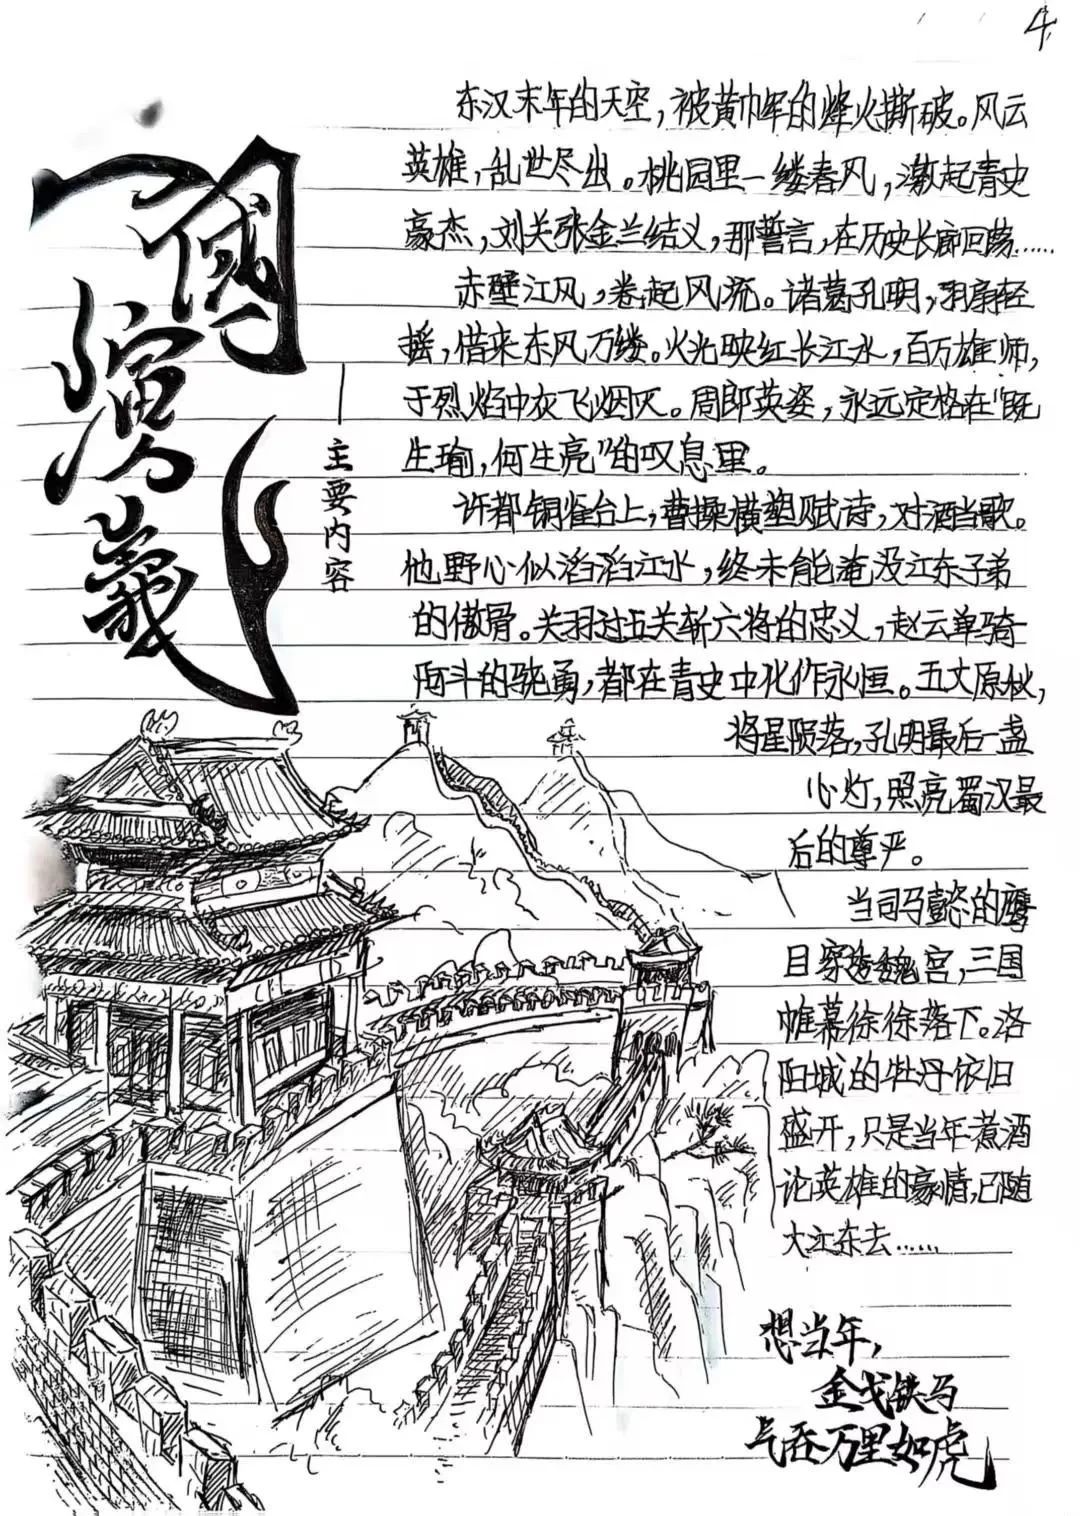 4
國
演
義
主要内容
东汉末年的天空，被黄巾军的烽火撕破。风云
英雄，乱世尽出。桃园里一缕春风，激起青史
豪杰，刘关张金兰结义，那誓言，在历史长廊回荡……
赤壁江风，卷起风流。诸葛孔明，羽扇轻
摇，借来东风万缕。火光映红长江水，百万雄师，
于烈焰中灰飞烟灭。周郎英姿，永远定格在"既
生瑜，何生亮"的叹息里。
许都铜雀台上，曹操横塑赋诗，对酒当歌。
他野心似滔滔江水，终未能淹没江东子弟
的傲骨。关羽过五关斩六将的忠义，赵云单骑
阿斗的骁勇，都在青史中化作永恒。五丈原秋，
将星陨落，孔明最后一盏
心灯，照亮蜀汉最
后的尊严。
当司马懿的鹰
目穿透魏宫，三国
帷幕徐徐落下。洛
阳城的牡丹依旧
盛开，只是当年煮酒
论英雄的豪情，已随
大江东去……
想当年，
金戈铁马
气吞万里如虎